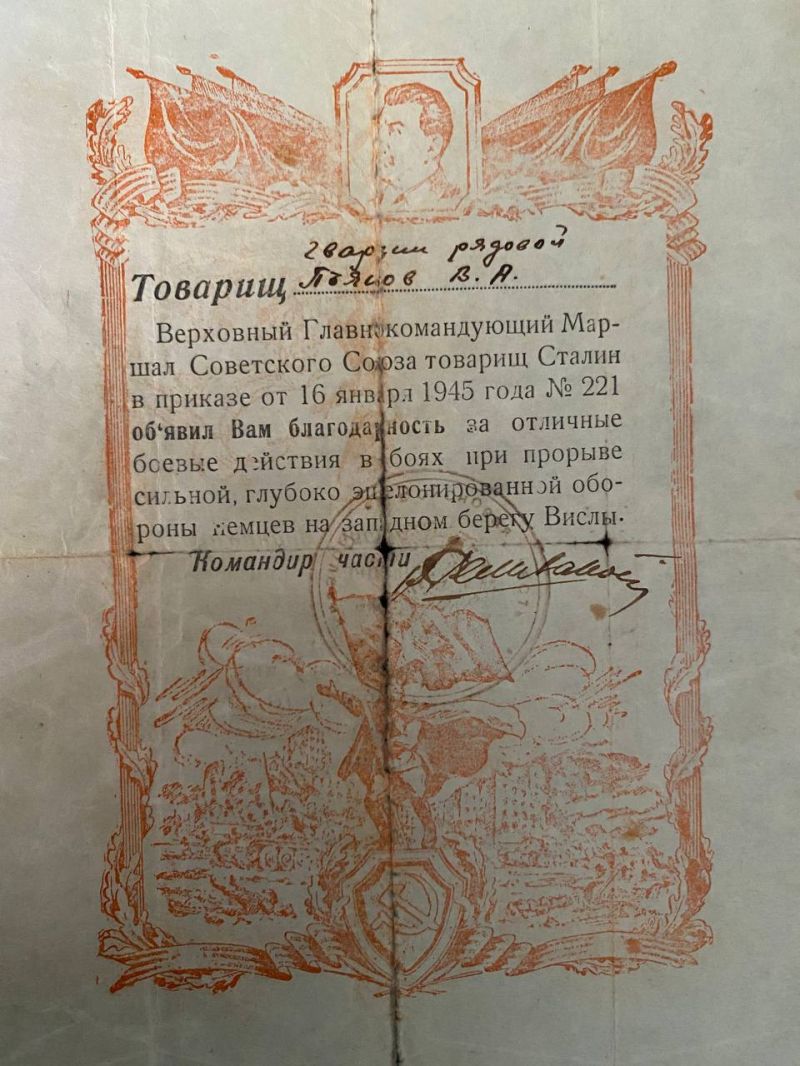 гвардии рядовой
Товарищ Пьянов В. А.
Верховный Главнокомандующий Мар-
шал Советского Союза товарищ Сталин
в приказе от 16 января 1945 года № 221
об‘явил Вам благодарность за отличные
боевые действия в боях при прорыве
сильной, глубоко эшелонированной обо-
роны немцев на западном берегу Вислы.
Командир части